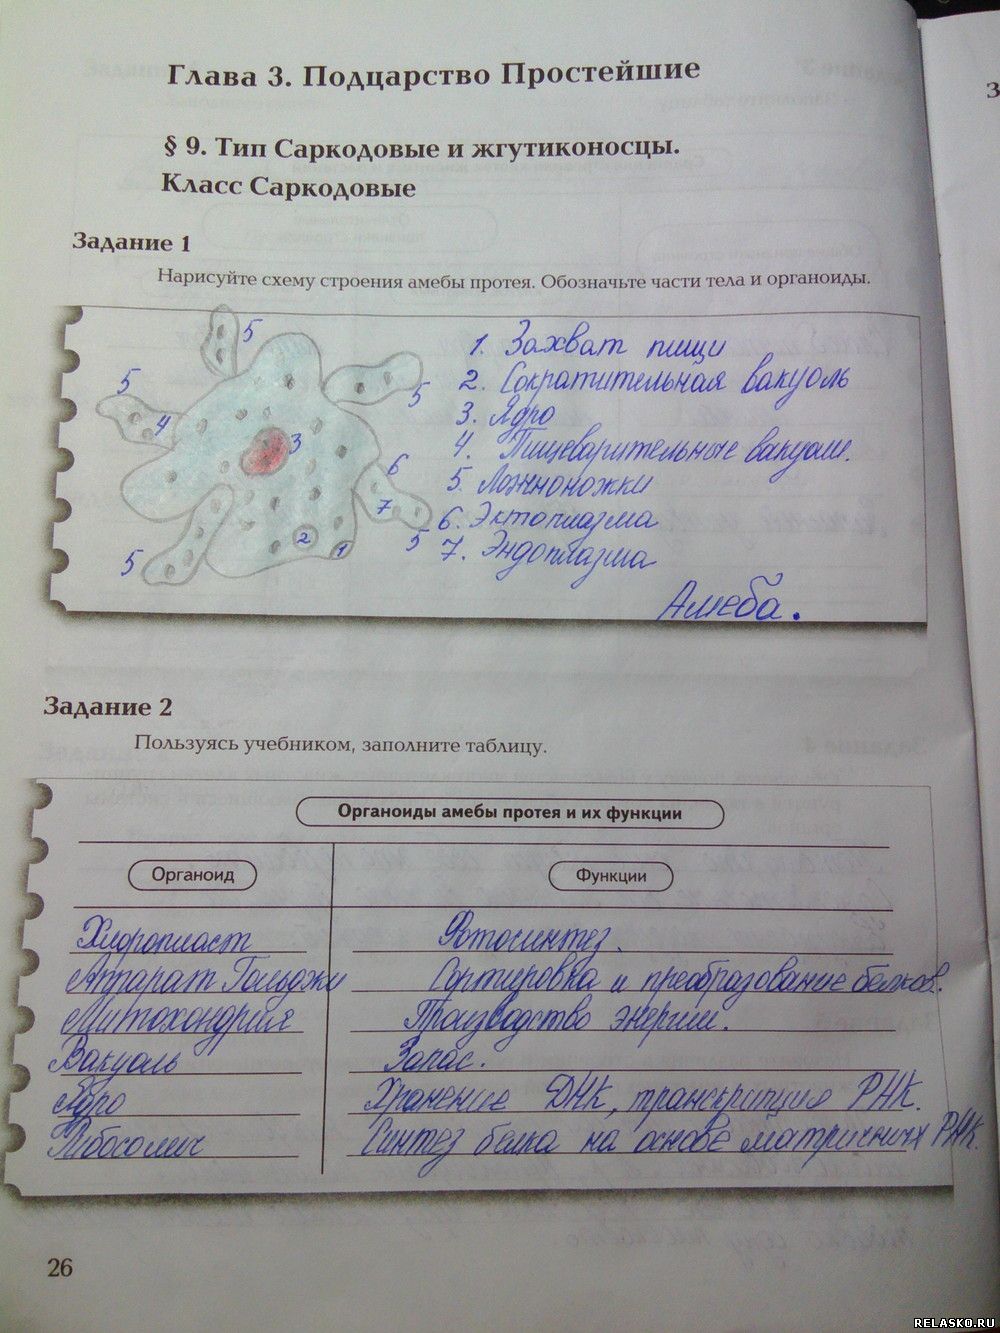 Глава 3. Подцарство Простейшие
З
§ 9. Тип Саркодовые и жгутиконосцы.
Класс Саркодовые
Задание 1
Нарисуйте схему строения амебы протея. Обозначьте части тела и органоиды.
5
5
5
4
3
6
7
5
5
2
1
1. Захват пищи
2. Сократительная вакуоль
3. Ядро
4. Пищеварительные вакуоли.
5. Ложноножки
6. Эктоплазма
7. Эндоплазма
Амеба.
Задание 2
Пользуясь учебником, заполните таблицу.
Органоиды амебы протея и их функции
Органоид Функции
Хлоропласт Фотосинтез.
Аппарат Гольджи Сортировка и преобразование белков.
Митохондрия Производство энергии.
Вакуоль Запас.
Ядро Хранение ДНК, транскрипция РНК.
Рибосомы Синтез белка на основе матричных РНК.
26
RELASKO.RU